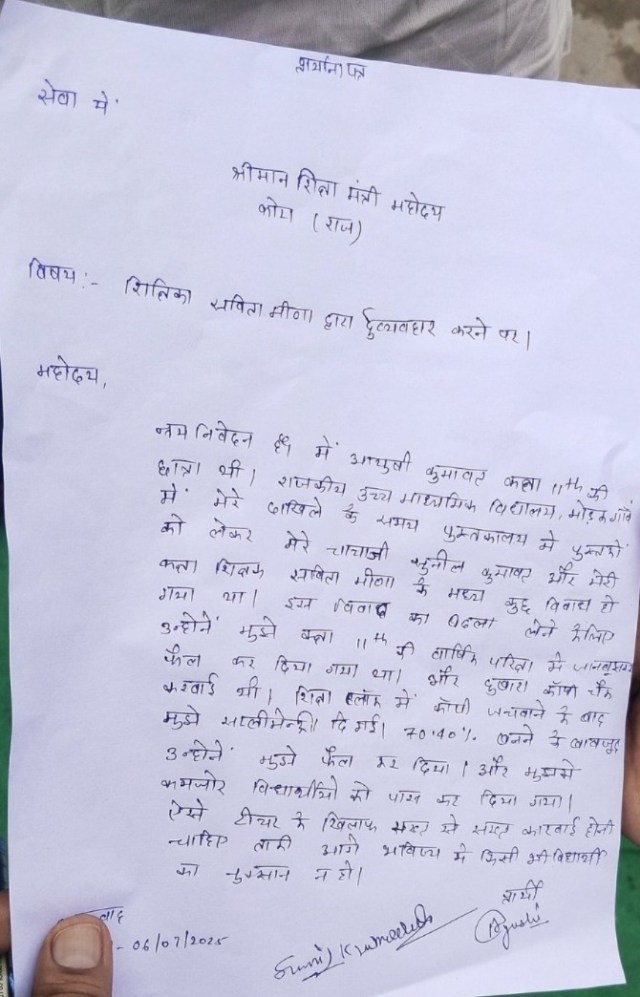 प्रार्थना पत्र
सेवा में
श्रीमान शिक्षा मंत्री महोदय
कोटा (राज)
विषय:- शिक्षिका सविता मीणा द्वारा दुर्व्यवहार करने पर।
महोदय,
नम्र निवेदन है। में आयुषी कुमावत कक्षा 11th की
छात्रा थी। राजकीय उच्च माध्यमिक विद्यालय, मोडक गाँव
में मेरे दाखिले के समय पुस्तकालय में पुस्तकों
को लेकर मेरे चाचाजी सुनील कुमावत और मेरी
कक्षा शिक्षक सविता मीणा के मध्य कुछ विवाद हो
गया था। इस विवाद का बदला लेने केलिए
उन्होनें मुझे कक्षा 11th की वार्षिक परिक्षा में जानबूझकर
फैल कर दिया गया था। और दुबारा कॉपी चैक
करवाई थी। शिक्षा ब्लॉक में कॉपी जचवाने के बाद
मुझे सप्लीमेन्ट्री दि गई। 70.40% बनने के बावजूद
उन्होनें मुझे फैल कर दिया। और मुझसे
कमजोर विद्यार्थीयो को पास कर दिया गया।
ऐसे टीचर के खिलाफ सख्त से सख्त कारवाई होनी
चाहिए ताकी आगे भविष्य में किसी भी विद्यार्थी
का नुकसान न हो।
प्रार्थी
Ayushi
- 06/07/2025
Sunil Kumawat